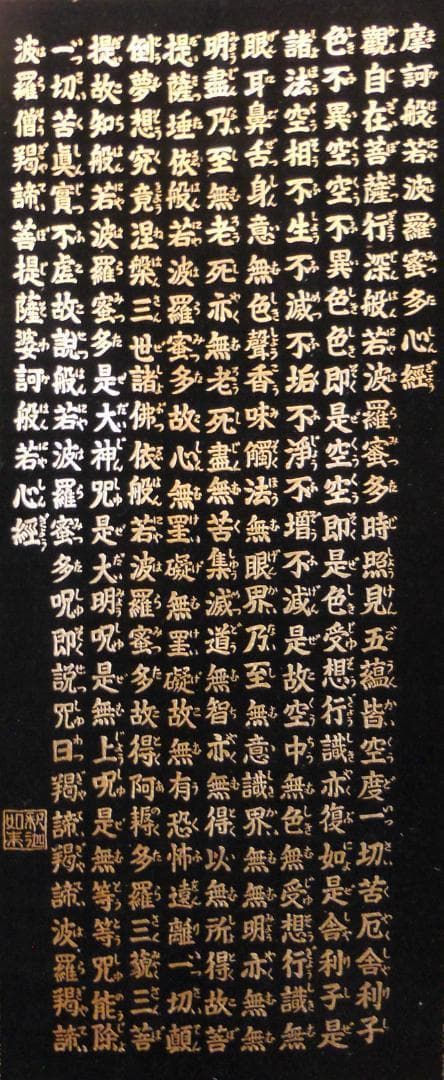 摩訶般若波羅蜜多心經
觀自在菩薩行深般若波羅蜜多時照見五蘊皆空度一切苦厄舍利子
色不異空空不異色色即是空空即是色受想行識亦復如是舍利子是
諸法空相不生不滅不垢不淨不增不減是故空中無色無受想行識無
眼耳鼻舌身意無色聲香味觸法無眼界乃至無意識界無無明亦無無
明盡乃至無老死亦無老死盡無苦集滅道無智亦無得以無所得故菩
提薩埵依般若波羅蜜多故心無罣礙無罣礙故無有恐怖遠離一切顛
倒夢想究竟涅槃三世諸佛依般若波羅蜜多故得阿耨多羅三藐三菩
提故知般若波羅蜜多是大神咒是大明呪是無上呪是無等等咒能除
一切苦眞實不虛故說般若波羅蜜多呪即說咒曰羯諦羯諦波羅羯諦
波羅僧羯諦菩提薩婆訶般若心經
釈迦
如来